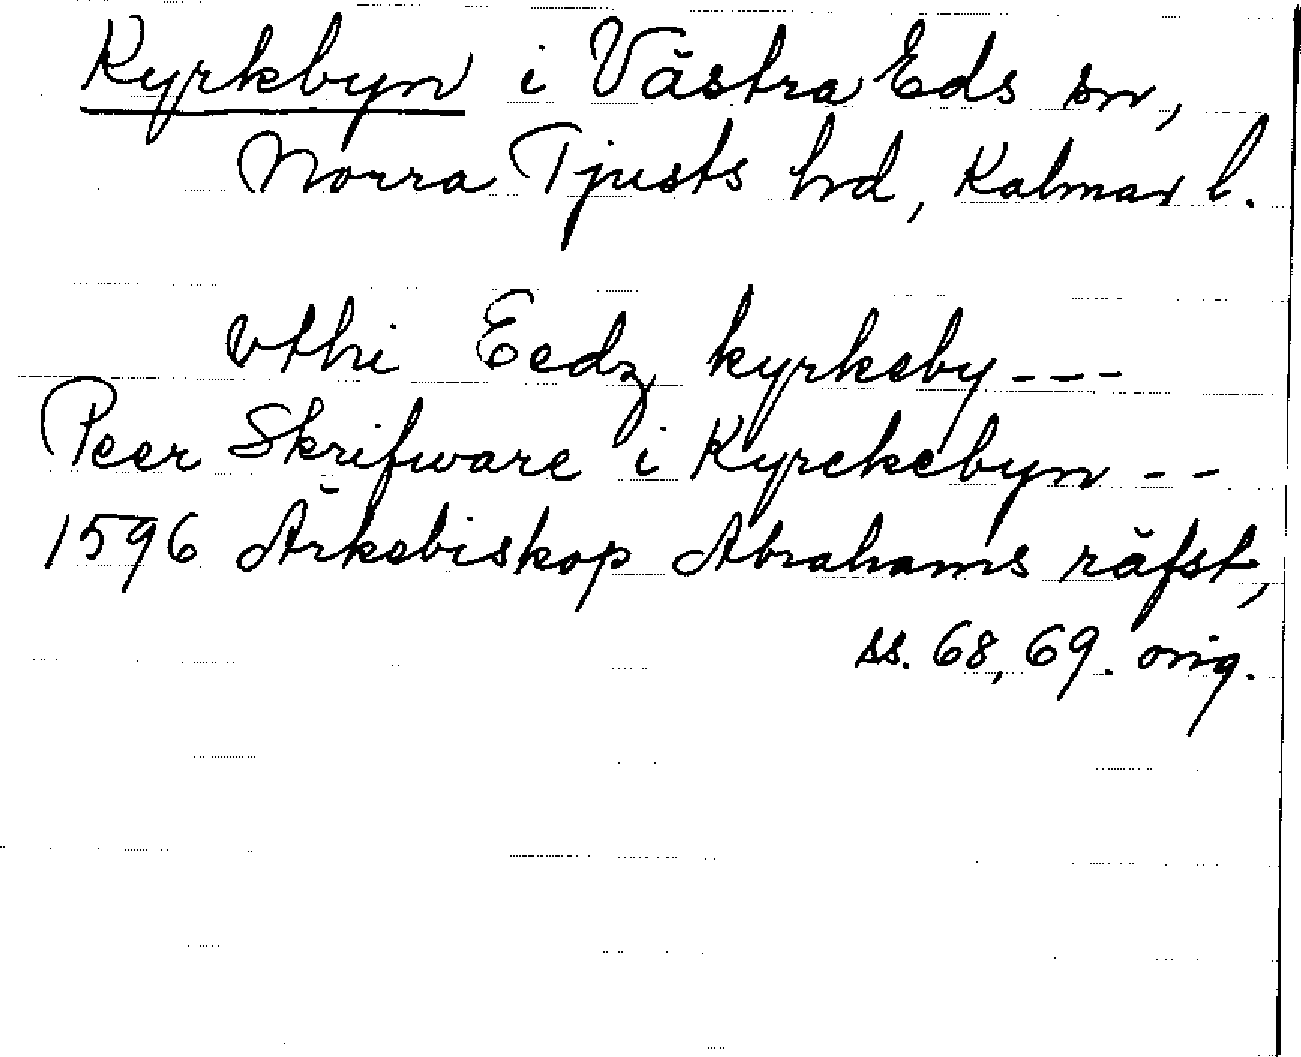 Kyrkbyn i Västra Eds sn,
Norra Tjusts hrd, Kalmar l.
vthi Eedz kyrkeby ---
Peer Skrifware i Kyrckebyn --
1596 Ärkebiskop Abrahams räfst,
ss. 68, 69. orig.